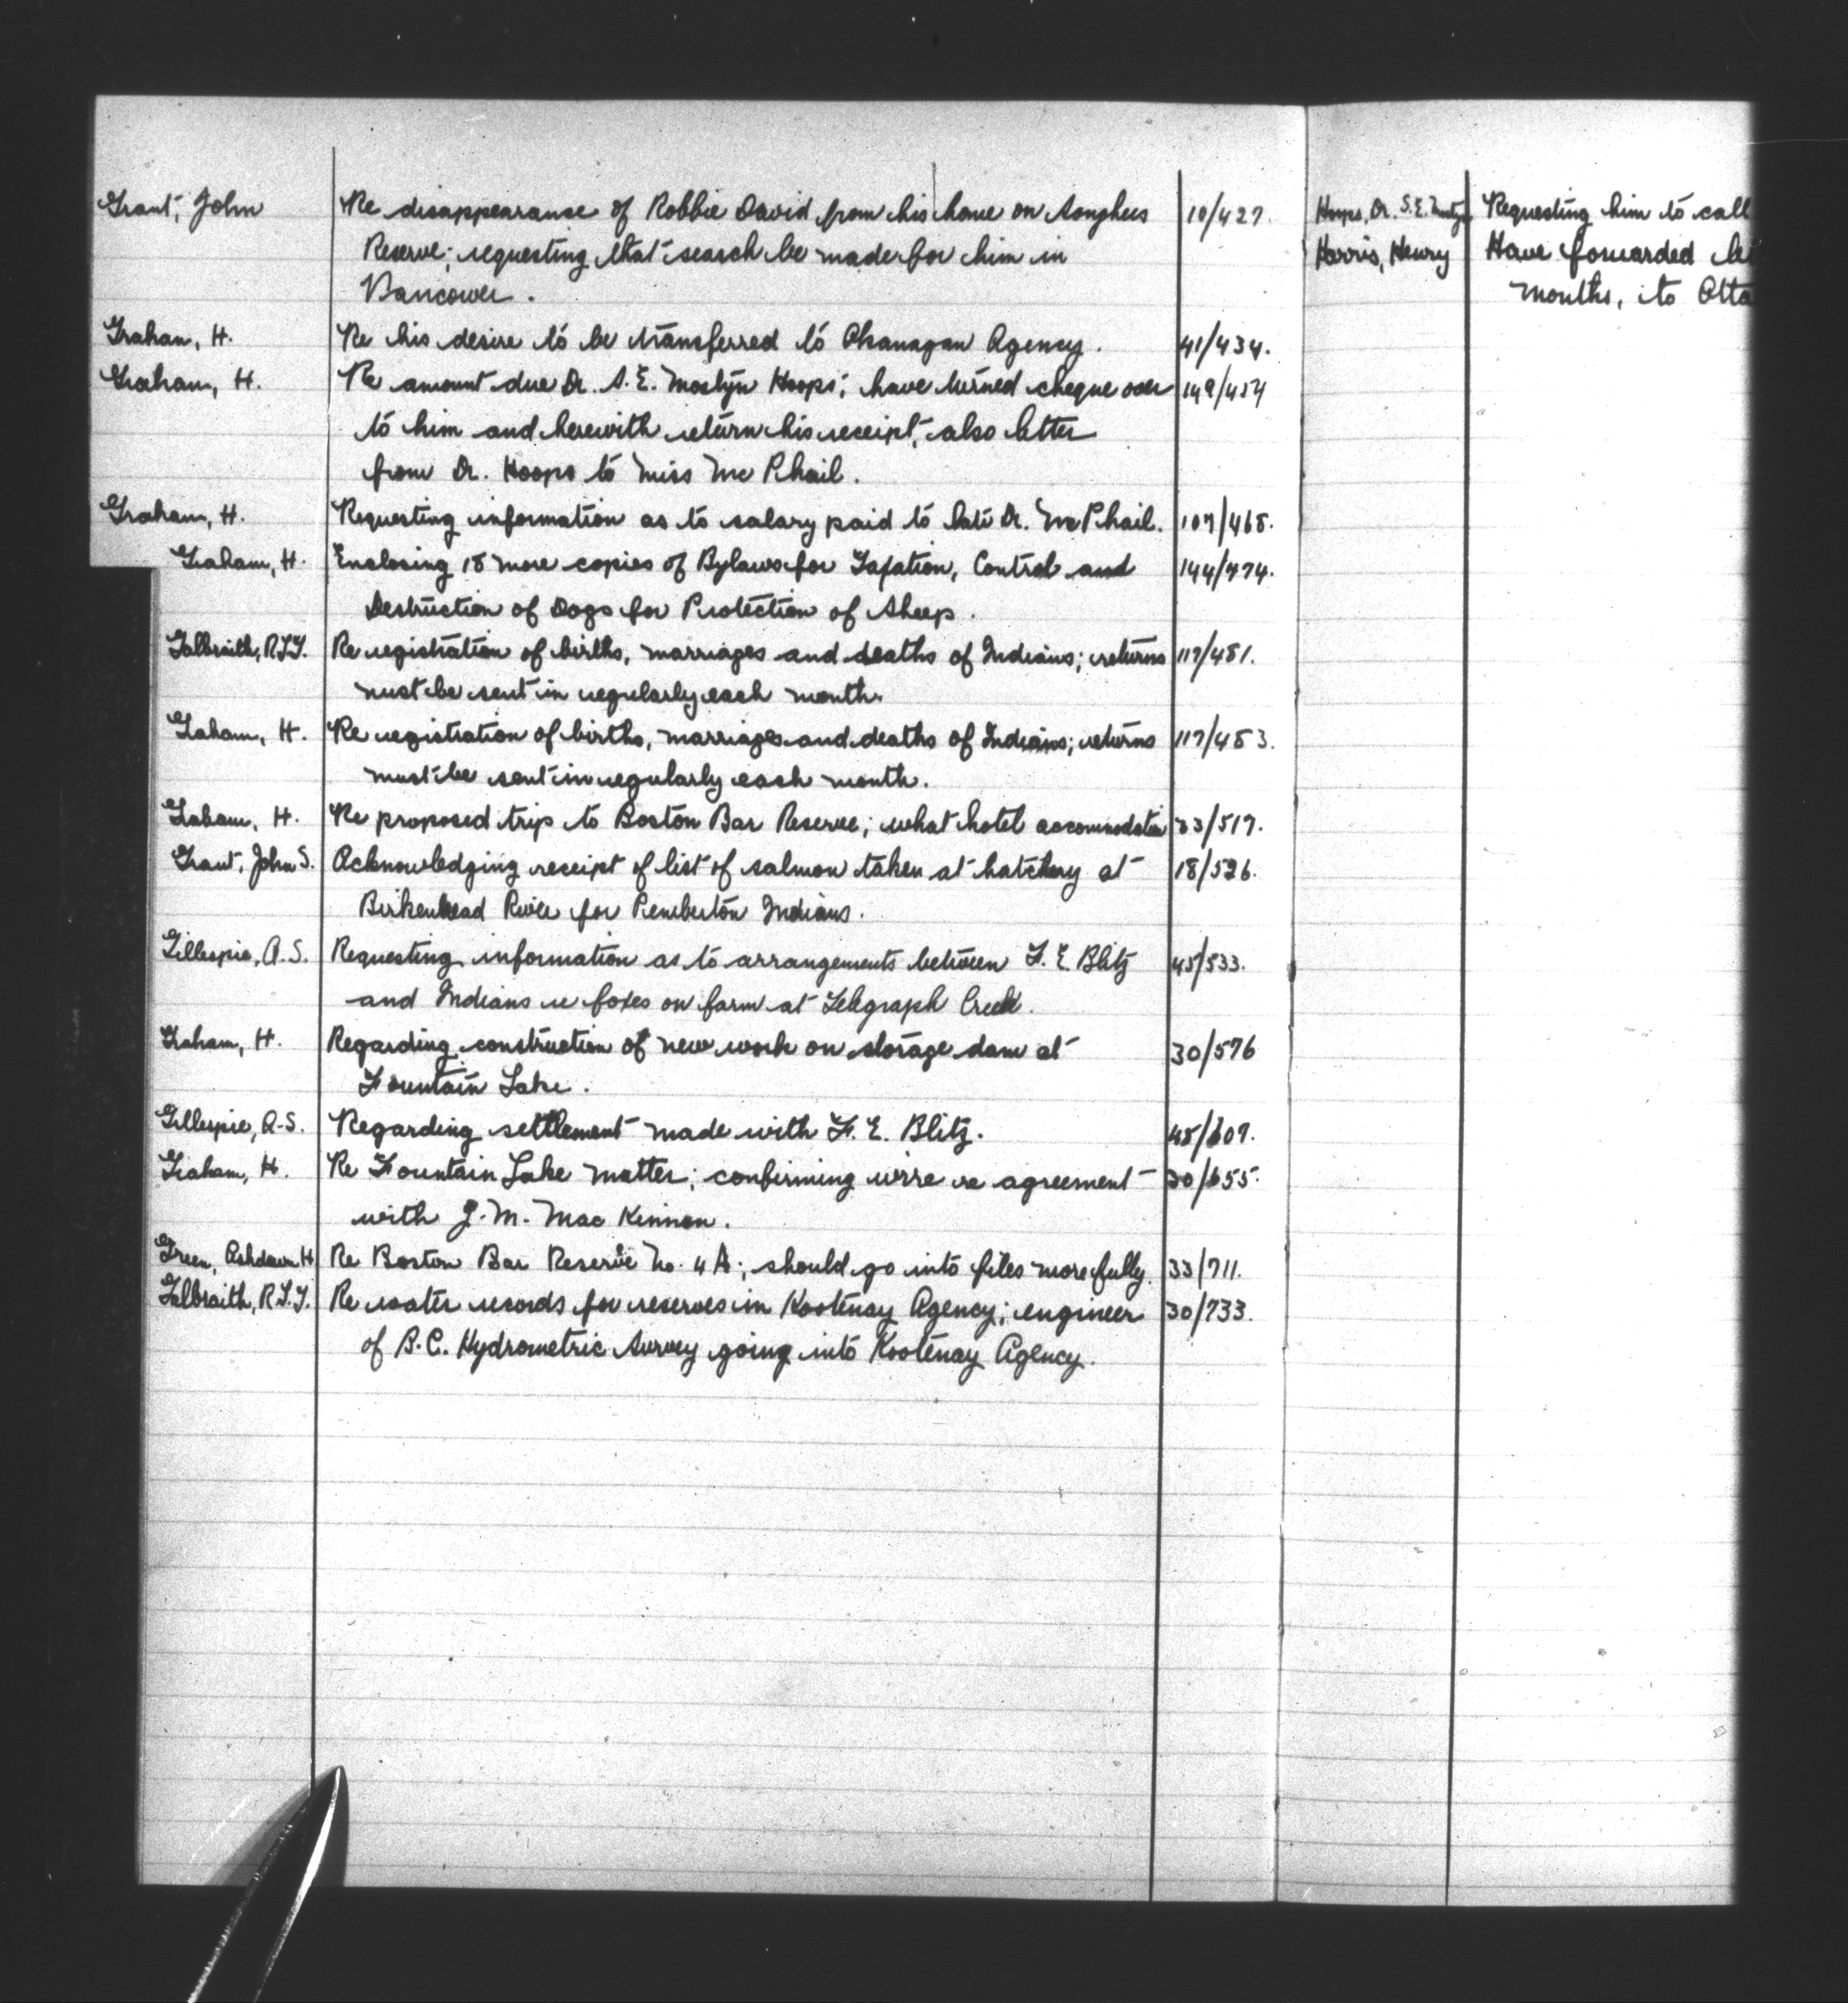 Grant, John Re disappearance of Robbie David from his home on Songhees 10/427.
Reserve; requesting that search be made for him in
Vancouver.
Graham, H. Re his desire to be transferred to Okanagan Agency. 41/434.
Graham, H. Re amount due Dr. S. E. Mostyn Hoops; have turned cheque over 149/457
to him and herewith return his receipt, also letter
from Dr. Hoops to Miss Mc Phail.
Graham, H. Requesting information as to salary paid to late Dr. Mc Phail. 107/468.
Graham, H. Enclosing 18 more copies of Bylaws for Taxation, Control and 144/474.
Destruction of Dogs for Protection of Sheep.
Galbraith, R.L.T. Re registration of births, marriages and deaths of Indians; returns 117/481.
must be sent in regularly each month.
Graham, H. Re registration of births, marriages and deaths of Indians; returns 117/483.
must be sent in regularly each month.
Graham, H. Re proposed trip to Boston Bar Reserve; what hotel accommodation 33/517.
Grant, John S. Acknowledging receipt of list of salmon taken at hatchery at 18/526.
Birkenhead River for Pemberton Indians.
Gillespie, A.S. Requesting information as to arrangements between F. E. Blitz 45/533.
and Indians re foxes on farm at Telegraph Creek.
Graham, H. Regarding construction of new work on storage dam at 30/576
Fountain Lake.
Gillespie, A.S. Regarding settlement made with F. E. Blitz. 45/609.
Graham, H. Re Fountain Lake matter; confirming wire re agreement 30/655.
with J. M. Mac Kinnon.
Green, Ashdown H. Re Boston Bar Reserve No. 4A; should go into files more fully. 33/711.
Galbraith, R.L.T. Re water records for reserves in Kootenay Agency; engineer 30/733.
of B.C. Hydrometric Survey going into Kootenay Agency.
Hoops, Dr. S.E. Requesting him to call
Harris, Henry Have forwarded
months, to Otta